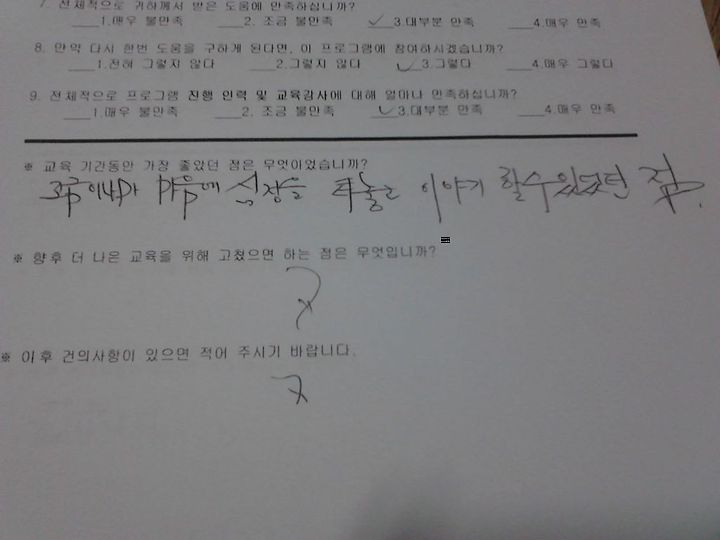 7. 전체적으로 귀하께서 받은 도움에 만족하십니까?
___1.매우 불만족 ___2. 조금 불만족 ✓3.대부분 만족 ___4.매우 만족
8. 만약 다시 한번 도움을 구하게 된다면, 이 프로그램에 참여하시겠습니까?
___1.전혀 그렇지 않다 ___2.그렇지 않다 ✓3.그렇다 ___4.매우 그렇다
9. 전체적으로 프로그램 진행 인력 및 교육강사에 대해 얼마나 만족하십니까?
___1.매우 불만족 ___2. 조금 불만족 ✓3.대부분 만족 ___4.매우 만족
※ 교육 기간동안 가장 좋았던 점은 무엇이었습니까?
조금이나마 마음에 심정을 터놓고 이야기 할수있었던 점.
※ 향후 더 나은 교육을 위해 고쳤으면 하는 점은 무엇입니까?
※ 이후 건의사항이 있으면 적어 주시기 바랍니다.